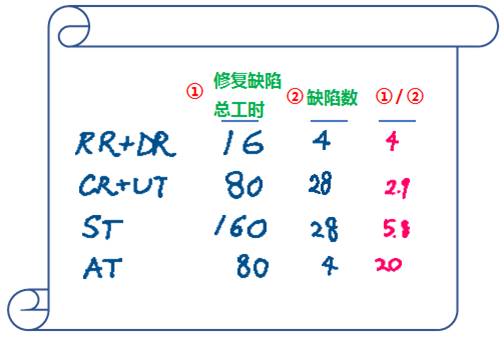 ① 修复缺陷总工时 ② 缺陷数 ①/②
RR+DR 16 4 4
CR+UT 80 28 2.9
ST 160 28 5.8
AT 80 4 20